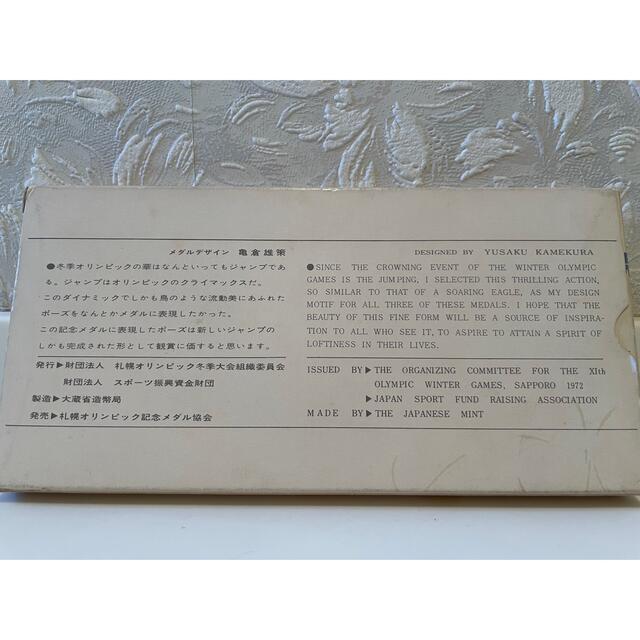 メダルデザイン 亀倉雄策
●冬季オリンピックの華はなんといってもジャンプであ
る。ジャンプはオリンピックのクライマックスだ。
このダイナミックでしかも鳥のような流動美にあふれた
ポーズをなんとかメダルに表現したかった。
この記念メダルに表現したポーズは新しいジャンプの
しかも完成された形として観賞に価すると思います。
発行▶財団法人 札幌オリンピック冬季大会組織委員会
財団法人 スポーツ振興資金財団
製造▶大蔵省造幣局
発売▶札幌オリンピック記念メダル協会
DESIGNED BY YUSAKU KAMEKURA
●SINCE THE CROWNING EVENT OF THE WINTER OLYMPIC
GAMES IS THE JUMPING, I SELECTED THIS THRILLING ACTION,
SO SIMILAR TO THAT OF A SOARING EAGLE, AS MY DESIGN
MOTIF FOR ALL THREE OF THESE MEDALS. I HOPE THAT THE
BEAUTY OF THIS FINE FORM WILL BE A SOURCE OF INSPIRA-
TION TO ALL WHO SEE IT, TO ASPIRE TO ATTAIN A SPIRIT OF
LOFTINESS IN THEIR LIVES.
ISSUED BY▶THE ORGANIZING COMMITTEE FOR THE XIth
OLYMPIC WINTER GAMES, SAPPORO 1972
▶JAPAN SPORT FUND RAISING ASSOCIATION
MADE BY▶THE JAPANESE MINT